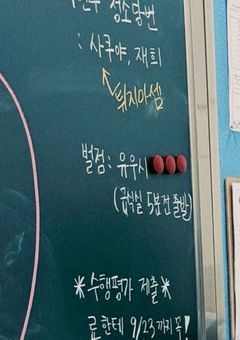 청소당번
: 사쿠야, 재희
튀지마셈
벌점: 유우시
(급식실 5분전 출발)
*수행평가 제출*
료한테 9/23까지 꼭!